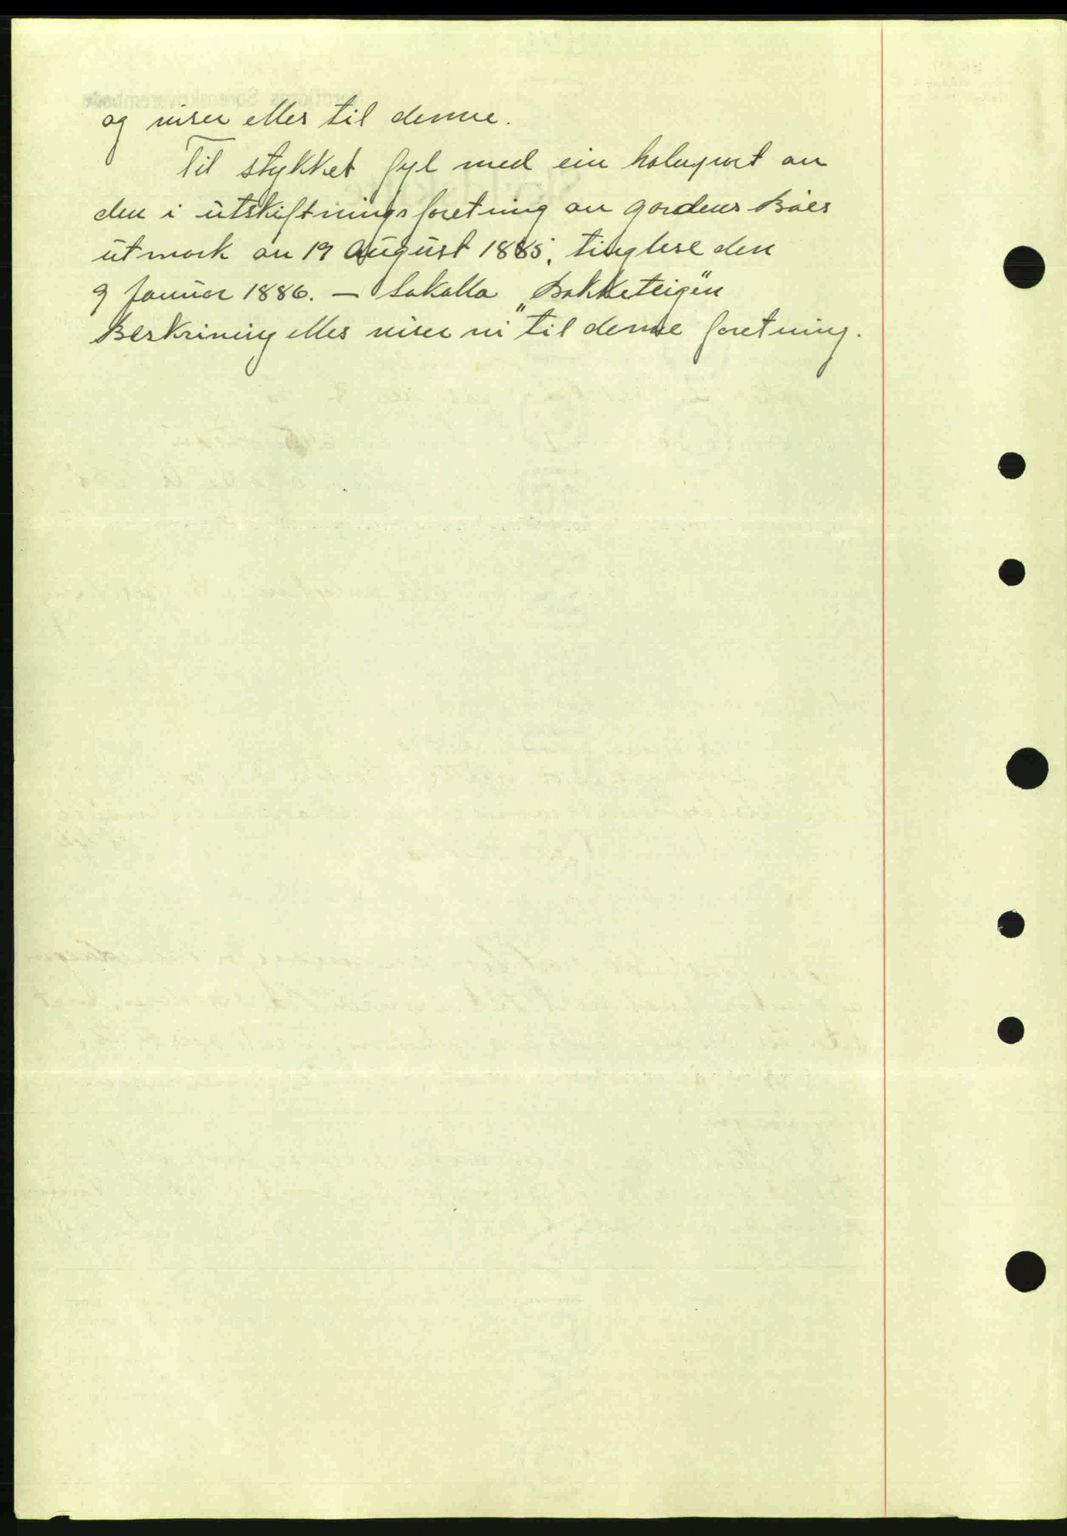 og viser elles til denne.
Til stykket fyl med ein halvpart av
den i utskiftningsforetning av gardens Båes
utmark av 19 August 1885, tinglese den
9 Januar 1886. — Sakalla „Bakketeigen"
Beskriving elles viser vi til denne foretning.